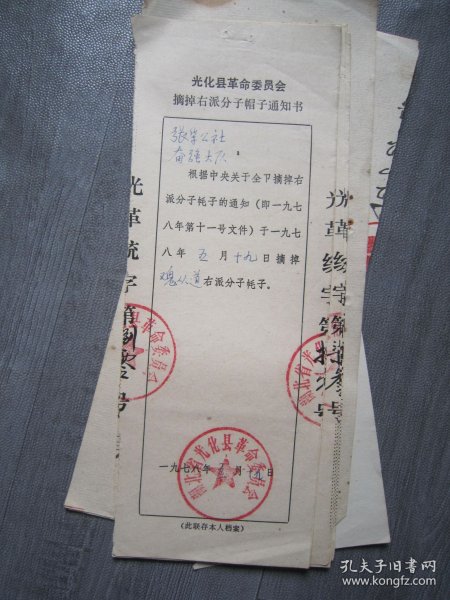 光化县革命委员会
摘掉右派分子帽子通知书
张 公社
奋强大队：
根据中央关于全下摘掉右
派分子耗子的通知（即一九七
八年第十一号文件）于一九七
八年五月十九日摘掉
魏从道右派分子耗子。
一九七八年五月十九日
湖北省光化县革命委员会
（此联存本人档案）
光革统字第
号
县革命委员会
光革统字第
号
湖北省光
孔夫子旧书网
www.kongfz.com